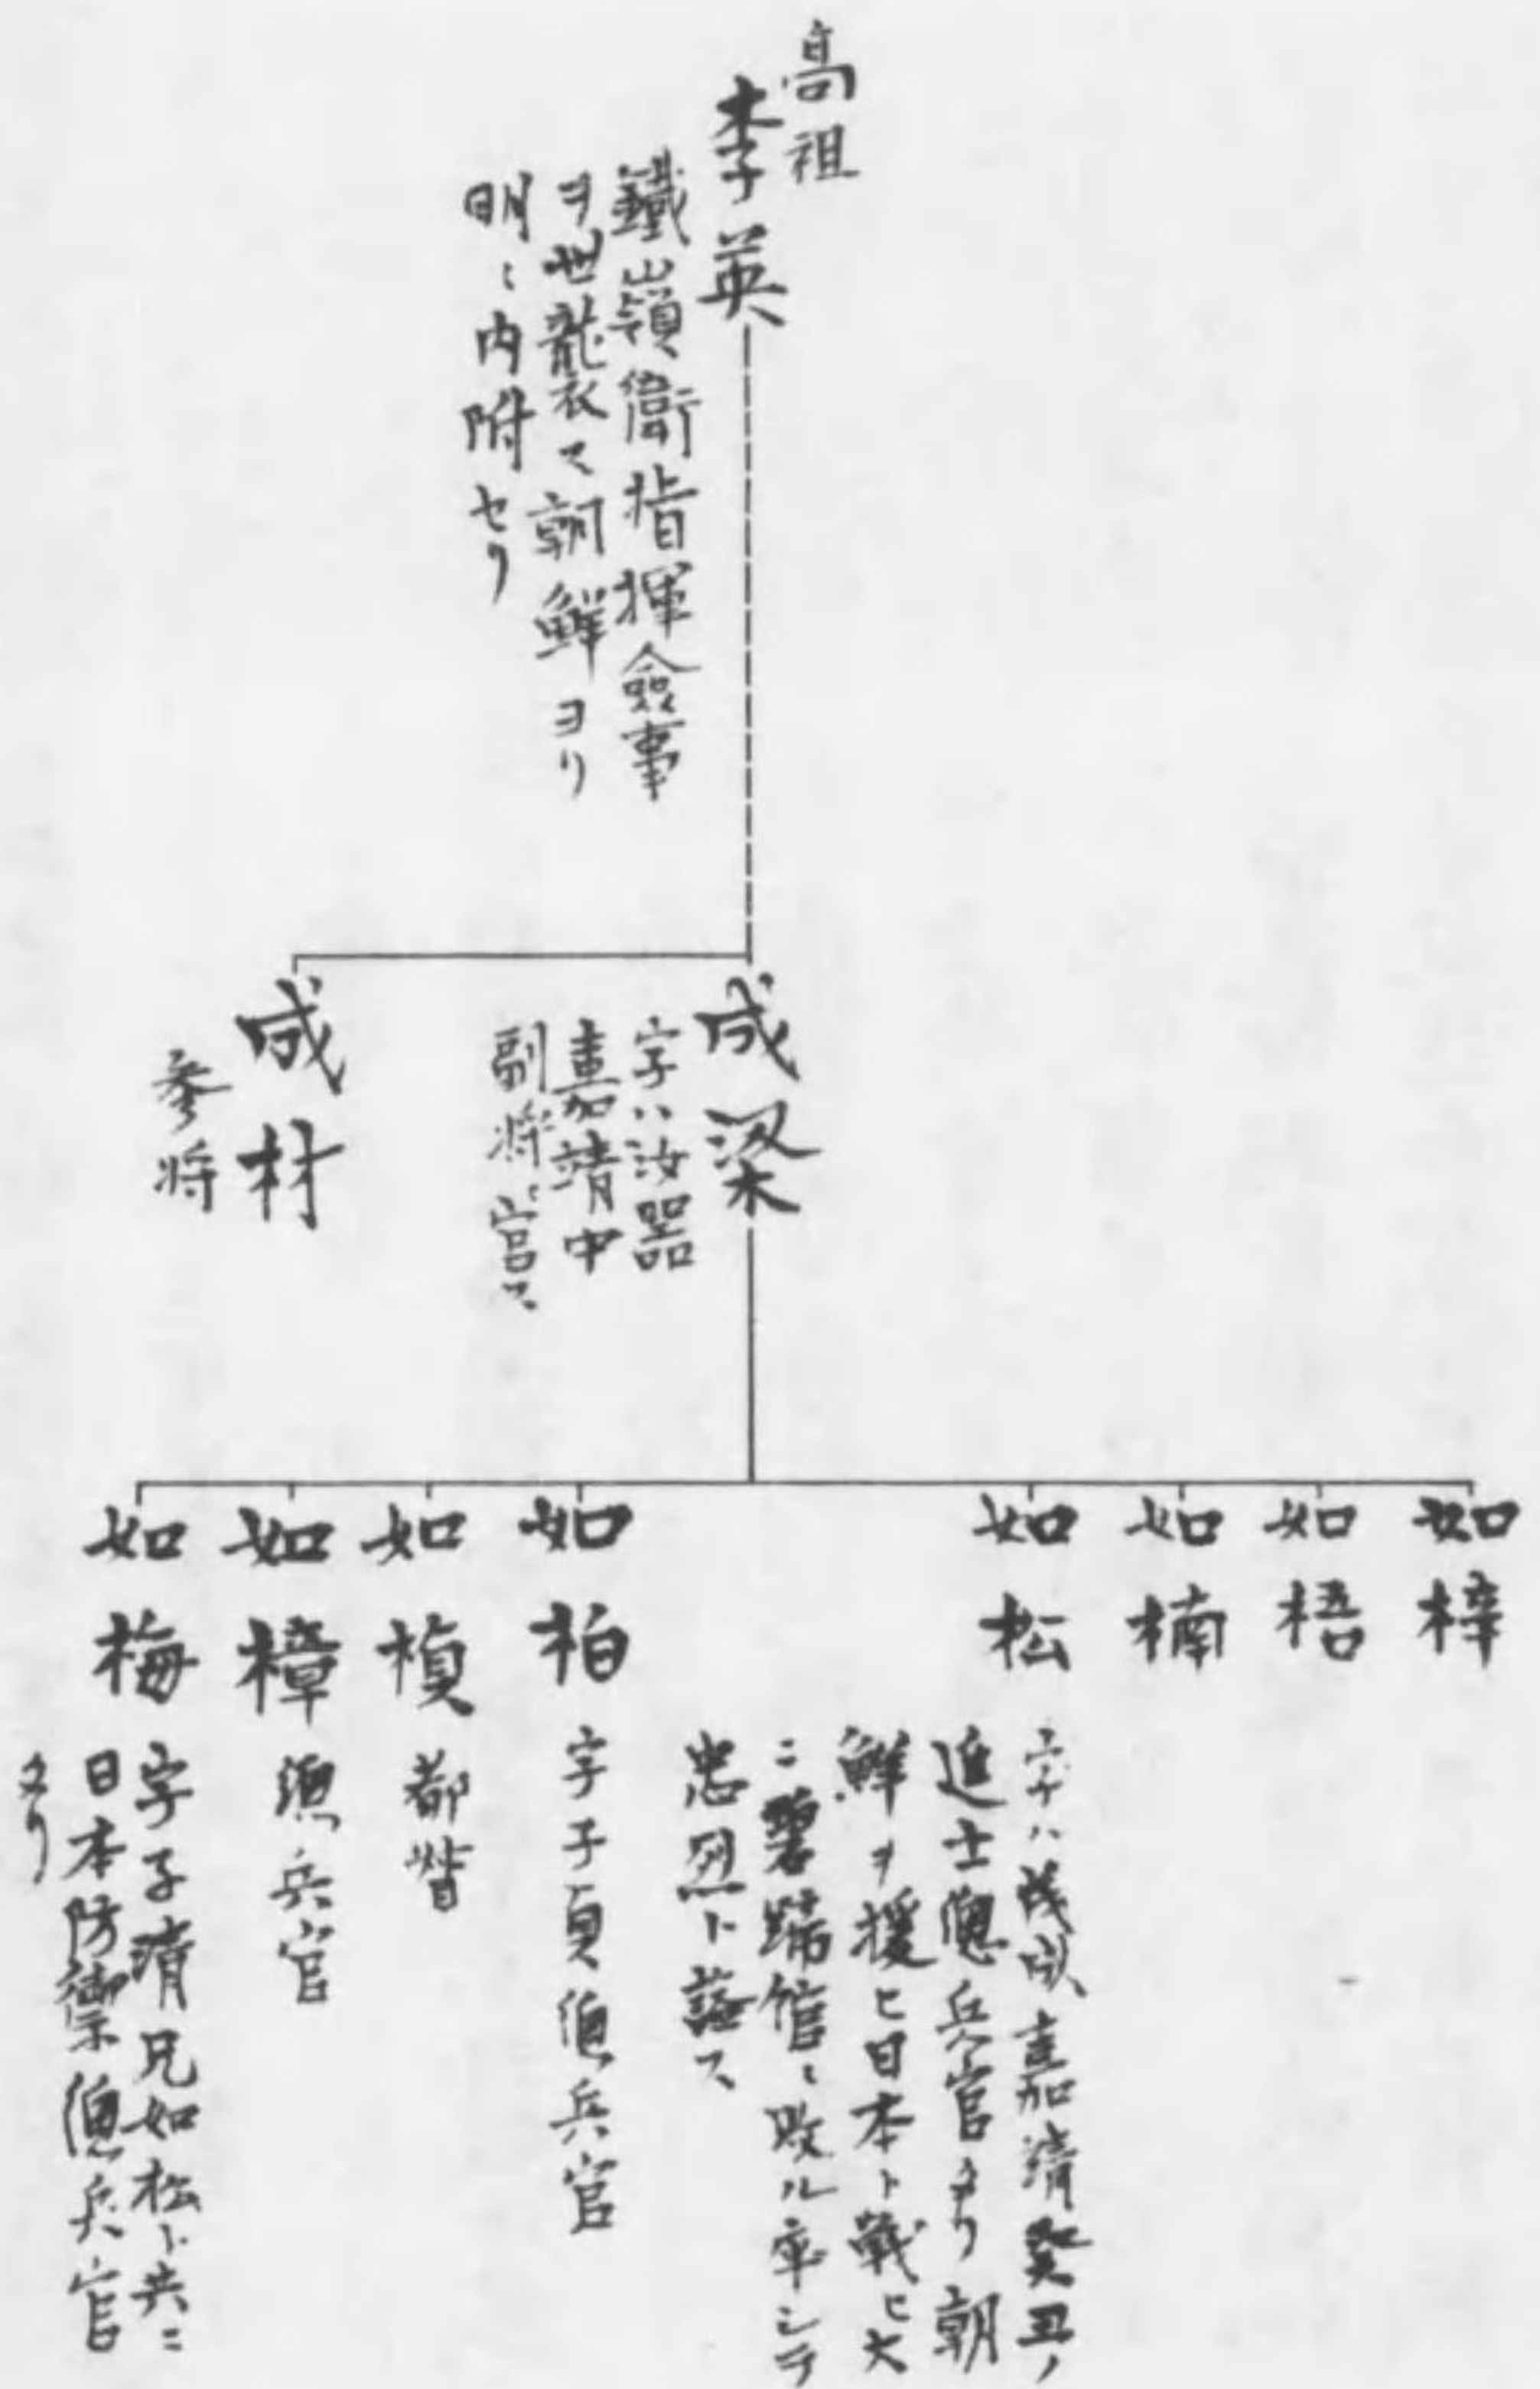 高祖
李英
鐵嶺衛指揮僉事
ヲ世襲ス朝鮮ヨリ
明ニ内附セリ
成梁
字ハ汝器
嘉靖中
副将ニ官ス
成材
参将
如梓
如梧
如楠
如松
字ハ茂 嘉靖癸丑ノ
進士總兵官タリ朝
鮮ヲ援ヒ日本ト戰ヒ大
ニ碧蹄館ニ敗ル卒シテ
忠烈ト諡ス
如柏
字子貞總兵官
如楨
都督
如樟
總兵官
如梅
字子清兄如松ト共ニ
日本防禦總兵官
タリ